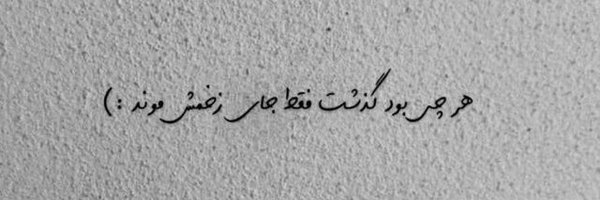 هر چی بود گذشت فقط جای زخمش موند :)